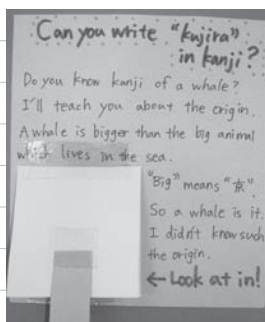 Can you write "kujira"
in kanji?
Do you know kanji of a whale?
I'll teach you about the origin.
A whale is bigger than the big animal
which lives in the sea.
"Big" means "京".
So a whale is it.
I didn't know such
the origin.
←Look at in!